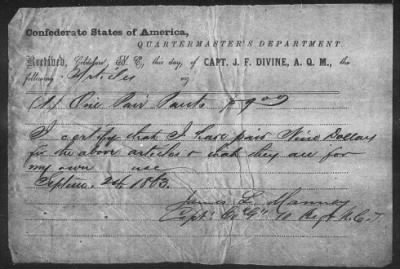 Confederate States of America,
QUARTERMASTER'S DEPARTMENT.
Received, Goldsboro, N. C., this day, of CAPT. J. F. DIVINE, A. Q. M., the
following Articles
(1) One Pair Pants $9.00
I certify that I have paid Nine Dollars
for the above articles & that they are for
my own use
1863.
James L. Manney
Capt. Co "G" 10 Regt N.C.T.